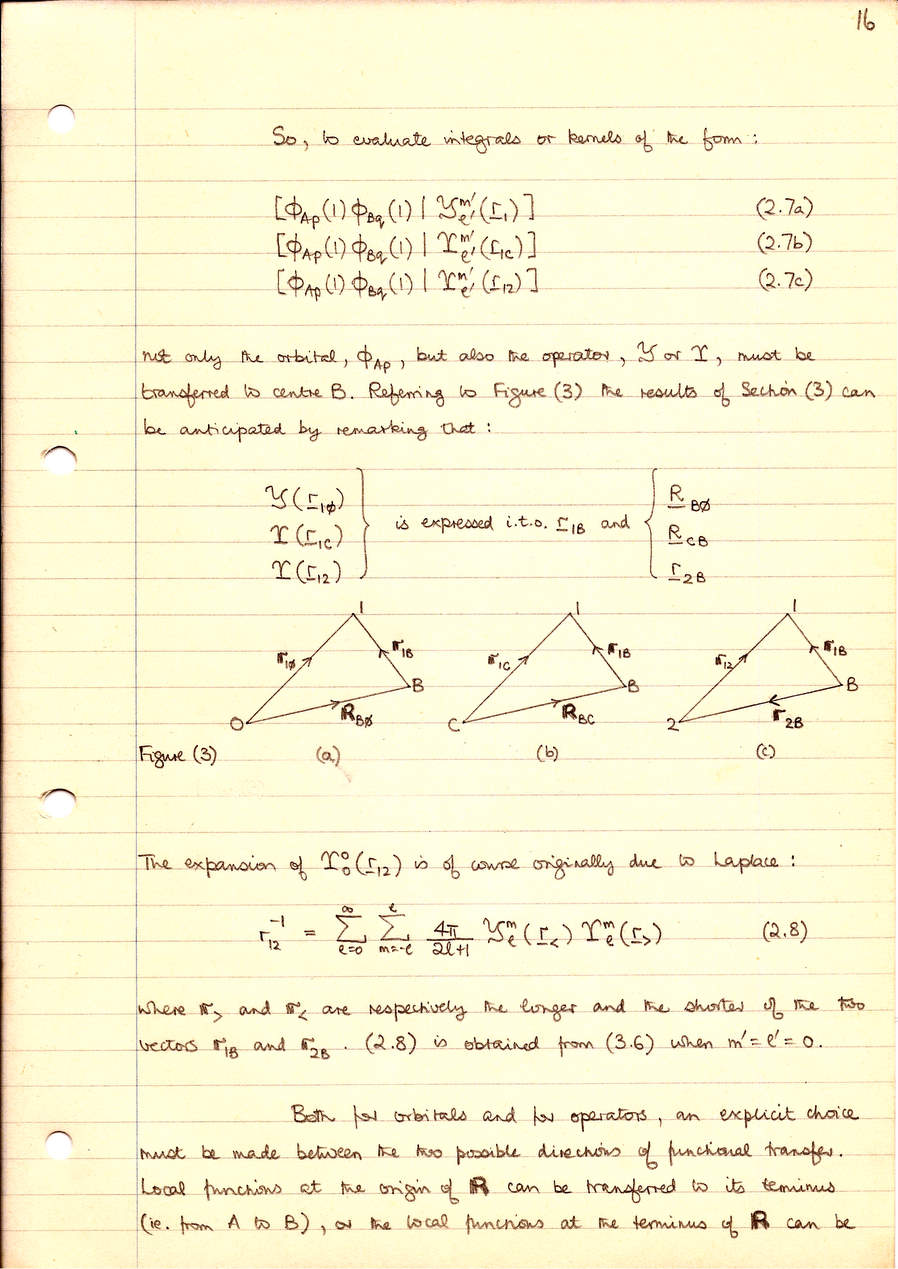 16
So, to evaluate integrals or kernels of the form :
[ϕ_Ap(1) ϕ_Bq(1) | 𝒴_ℓ'^m'(r_1)] (2.7a)
[ϕ_Ap(1) ϕ_Bq(1) | ϒ_ℓ'^m'(r_1C)] (2.7b)
[ϕ_Ap(1) ϕ_Bq(1) | ϒ_ℓ'^m'(r_12)] (2.7c)
not only the orbital, ϕ_Ap, but also the operator, 𝒴 or ϒ, must be
transferred to centre B. Referring to Figure (3) the results of Section (3) can
be anticipated by remarking that :
𝒴(r_1ø)
ϒ(r_1C)
ϒ(r_12)
is expressed i.t.o. r_1B and
R_Bø
R_CB
r_2B
1 1 1
r_1ø r_1B r_1C r_1B r_12 r_1B
B B B
O R_Bø C R_BC 2 r_2B
Figure (3) (a) (b) (c)
The expansion of ϒ_0^0(r_12) is of course originally due to Laplace :
r_12^-1 = ∑_{ℓ=0}^∞ ∑_{m=-ℓ}^ℓ 4π/(2ℓ+1) 𝒴_ℓ^m(r_<) ϒ_ℓ^m(r_>) (2.8)
where r_> and r_< are respectively the longer and the shorter of the two
vectors r_1B and r_2B. (2.8) is obtained from (3.6) when m'=ℓ'=0.
Both for orbitals and for operators, an explicit choice
must be made between the two possible directions of functional transfer.
Local functions at the origin of R can be transferred to its terminus
(ie. from A to B), or the local functions at the terminus of R can be